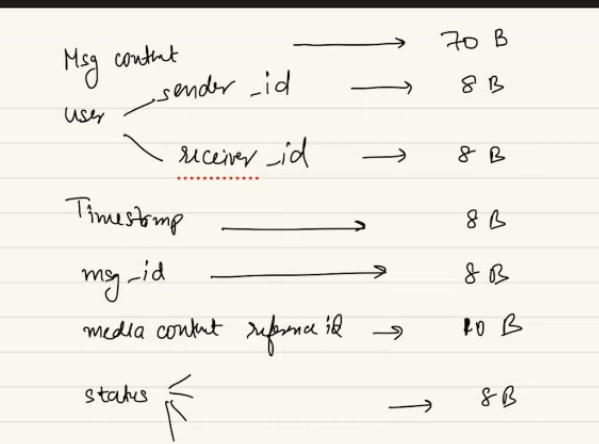 Msg content → 70 B
user sender_id → 8 B
receiver_id → 8 B
Timestamp → 8 B
msg_id → 8 B
media content reference id → 10 B
status → 8 B